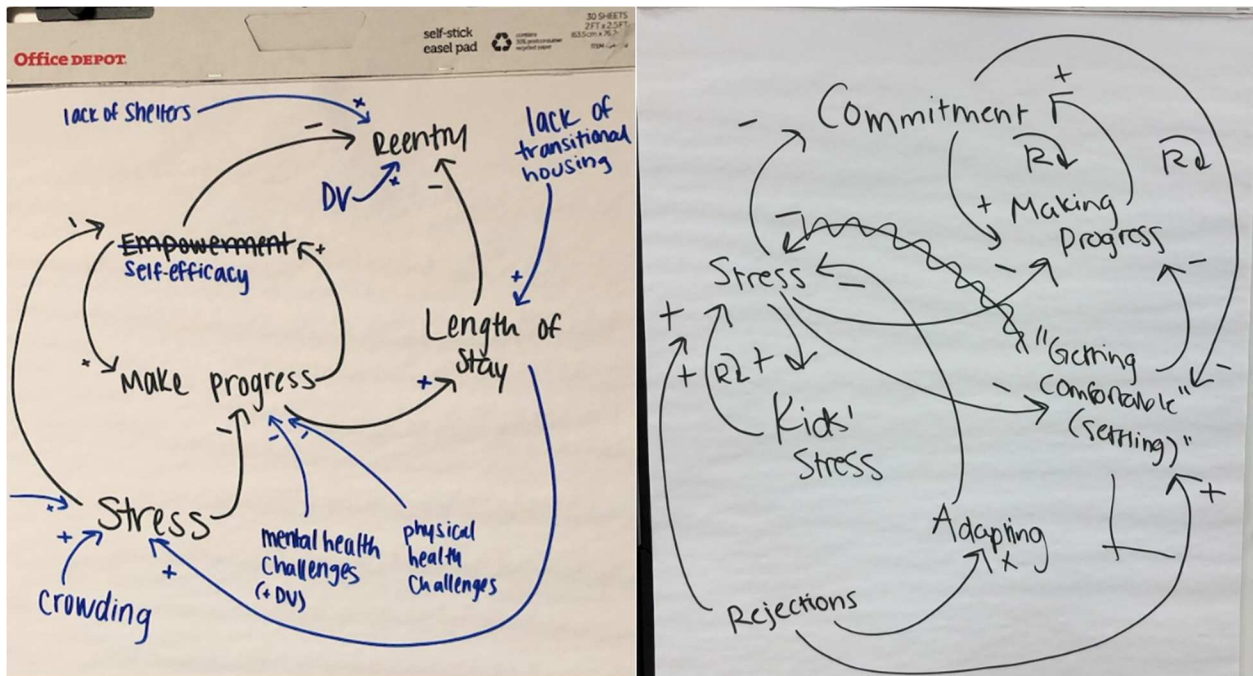 Office DEPOT.
self-stick
easel pad
30 SHEETS
lack of Shelters
+
-
Reentry
lack of
transitional
housing
DV
+
-
Empowerment
+
Self-efficacy
+
Length of
Stay
+
Make progress
+
-
-
-
Stress
+
+
+
mental health
Challenges
(+DV)
physical
health
Challenges
Crowding
+
Commitment
-
R
R
+
Making
progress
-
Stress
-
-
-
+
+
R
+
"Getting
Comfortable"
(Settling)"
-
-
Kids'
Stress
+
Adapting
+
Rejections